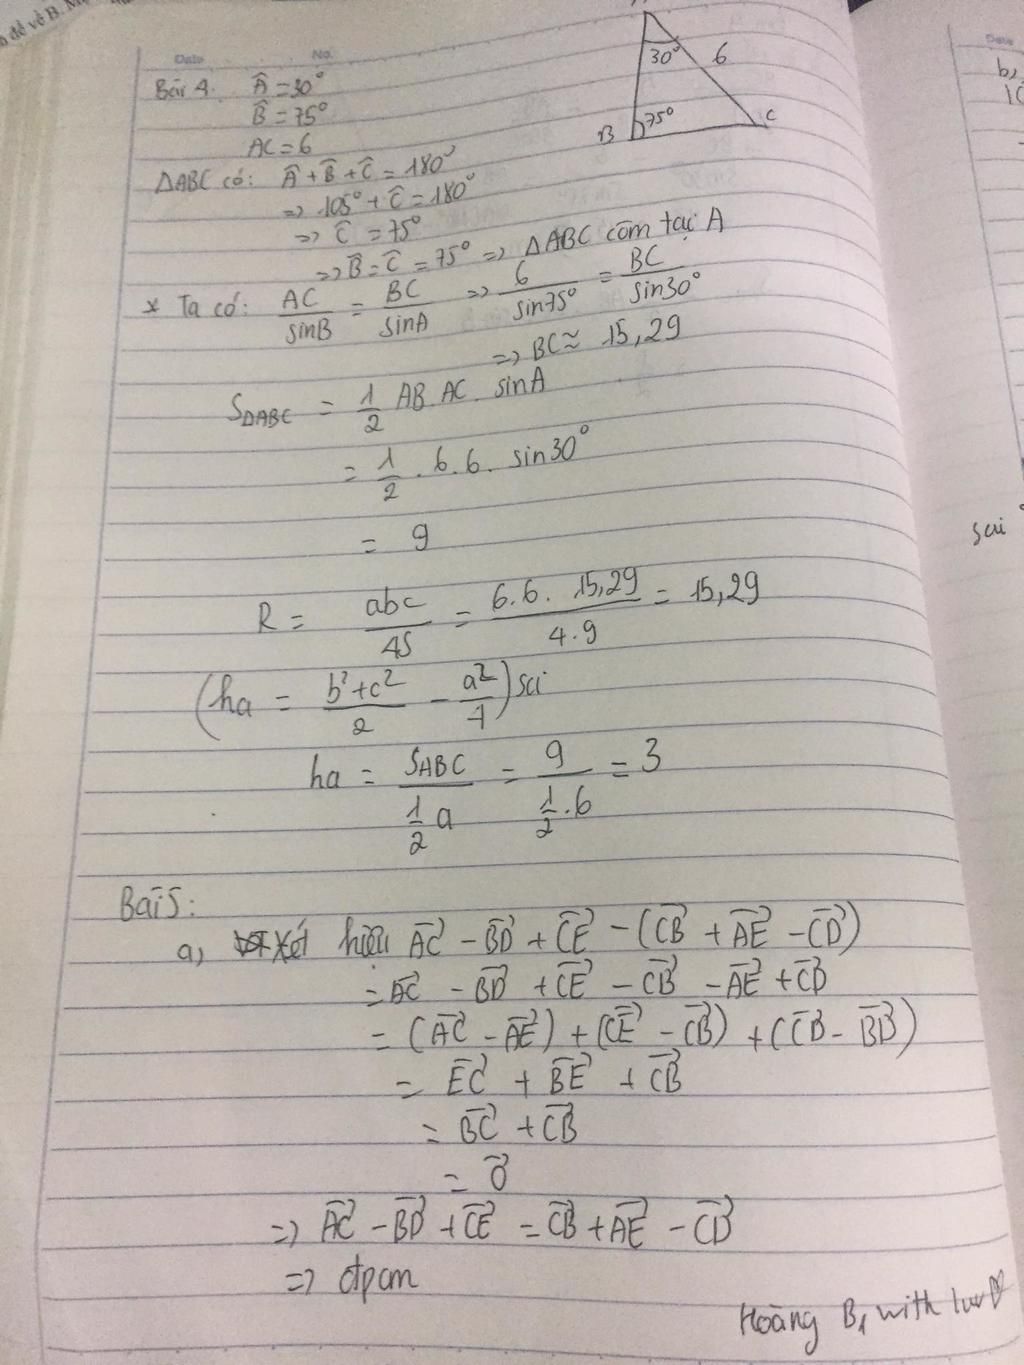 đề về B. M
Date No.
Date
30° 6
B 75° C
Bài 4. Â = 30°
B̂ = 75°
AC = 6
ΔABC có: Â + B̂ + Ĉ = 180°
=> 105° + Ĉ = 180°
=> Ĉ = 75°
=> B̂ = Ĉ = 75° => ΔABC cân tại A
* Ta có: AC/sinB = BC/sinA => 6/sin75° = BC/sin30°
=> BC ≈ 15,29
SΔABC = 1/2 AB.AC. sinA
= 1/2 . 6.6. sin30°
= 9
R = abc/4S = 6.6. 15,29/4.9 = 15,29
(ha = b²+c²/2 - a²/4) sai
ha = SABC/(1/2 a) = 9/(1/2 .6) = 3
Bài 5:
a, Xét hiệu AC⃗ - BD⃗ + CE⃗ - (CB⃗ + AE⃗ - CD⃗)
= AC⃗ - BD⃗ + CE⃗ - CB⃗ - AE⃗ + CD⃗
= (AC⃗ - AE⃗) + (CE⃗ - CB⃗) + (CD⃗ - BD⃗)
= EC⃗ + BE⃗ + CB⃗
= BC⃗ + CB⃗
= 0⃗
=> AC⃗ - BD⃗ + CE⃗ = CB⃗ + AE⃗ - CD⃗
=> đpcm
Hoàng B1 with luv ♡
b,
sai